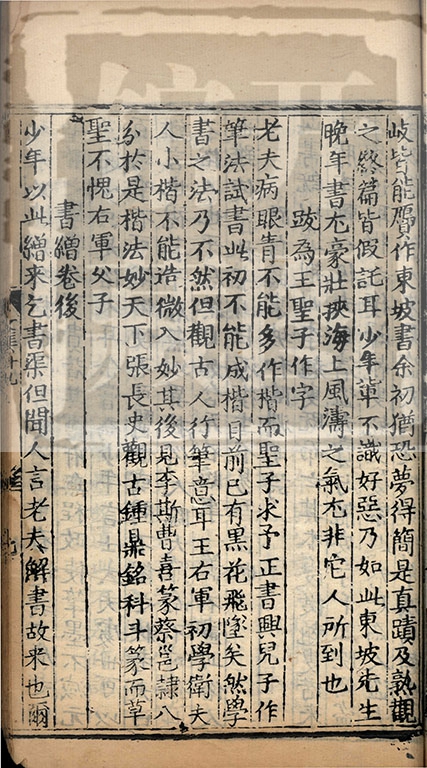 岐皆能贗作東坡書余初猶恐夢得簡是真蹟及熟觀
之終篇皆假託耳少年輩不識好惡乃如此東坡先生
晚年書尤豪壯挾海上風濤之氣尤非它人所到也
跋為王聖子作字
老夫病眼青不能多作楷而聖子求予正書與兒子作
筆法試書此初不能成楷目前已有黑花飛墜矣然學
書之法乃不然但觀古人行筆意耳王右軍初學衛夫
人小楷不能造微入妙其後見李斯曹喜篆蔡邕隸八
分於是楷法妙天下張長史觀古鍾鼎銘科斗篆而草
聖不愧右軍父子
書繒卷後
少年以此繒来乞書渠但聞人言老夫解書故来也爾